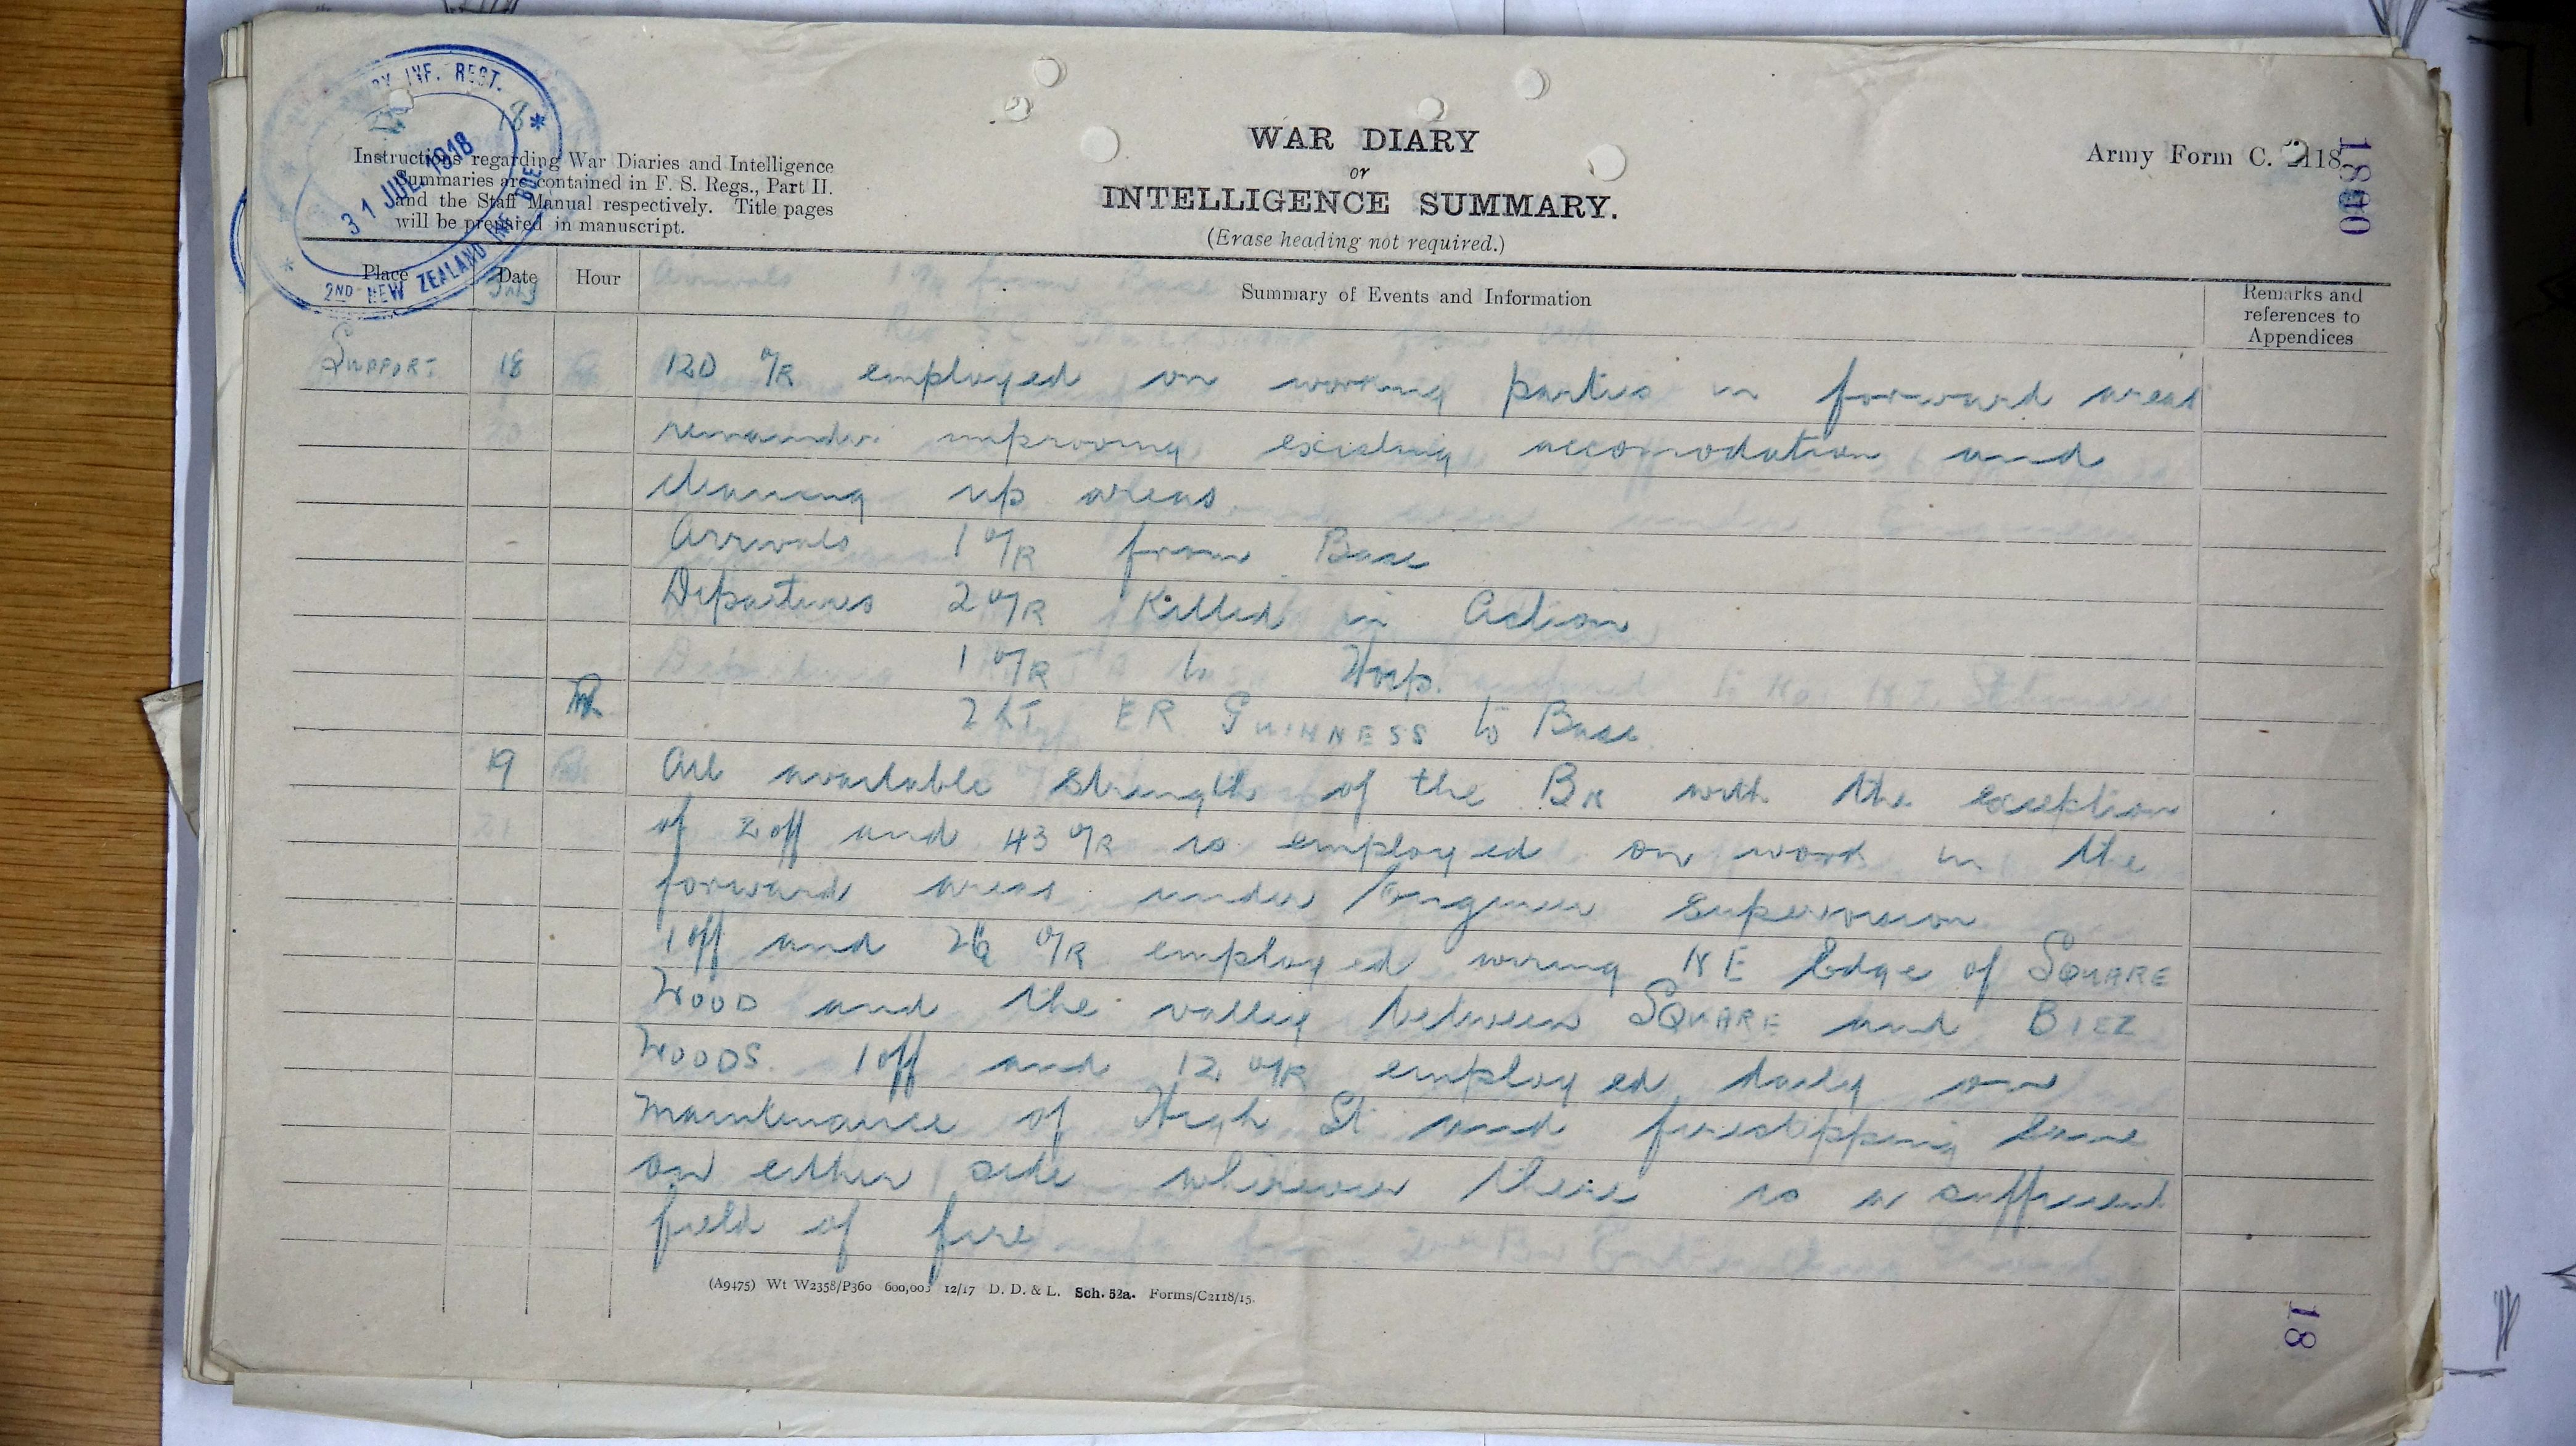 INF. REGT.
31 JUL 1918
2ND NEW ZEALAND INF. BDE.
Instructions regarding War Diaries and Intelligence
Summaries are contained in F. S. Regs., Part II.
and the Staff Manual respectively. Title pages
will be prepared in manuscript.
WAR DIARY
or
INTELLIGENCE SUMMARY.
(Erase heading not required.)
Army Form C. 2118.
Place
Date
Hour
Summary of Events and Information
Remarks and
references to
Appendices
July
SUPPORT 18 120 O/R employed on working parties in forward areas
remainder improving existing accomodation and
cleaning up areas
Arrivals 1 O/R from Base
Departures 2 O/R Killed in Action
1 O/R to Hosp.
2 LT ER GUINNESS to Base
19 All available strength of the BN with the exception
of 2 off and 43 O/R is employed on work in the
forward areas under Engineer supervision
1 off and 26 O/R employed wiring NE Edge of SQUARE
WOOD and the valley between SQUARE and BIEZ
WOODS. 1 off and 12 O/R employed daily on
maintenance of High St and firestepping same
on either side wherever there is a sufficient
field of fire
(A9475) Wt W2358/P360 600,000 12/17 D. D. & L. Sch. 52a. Forms/C2118/15.
18